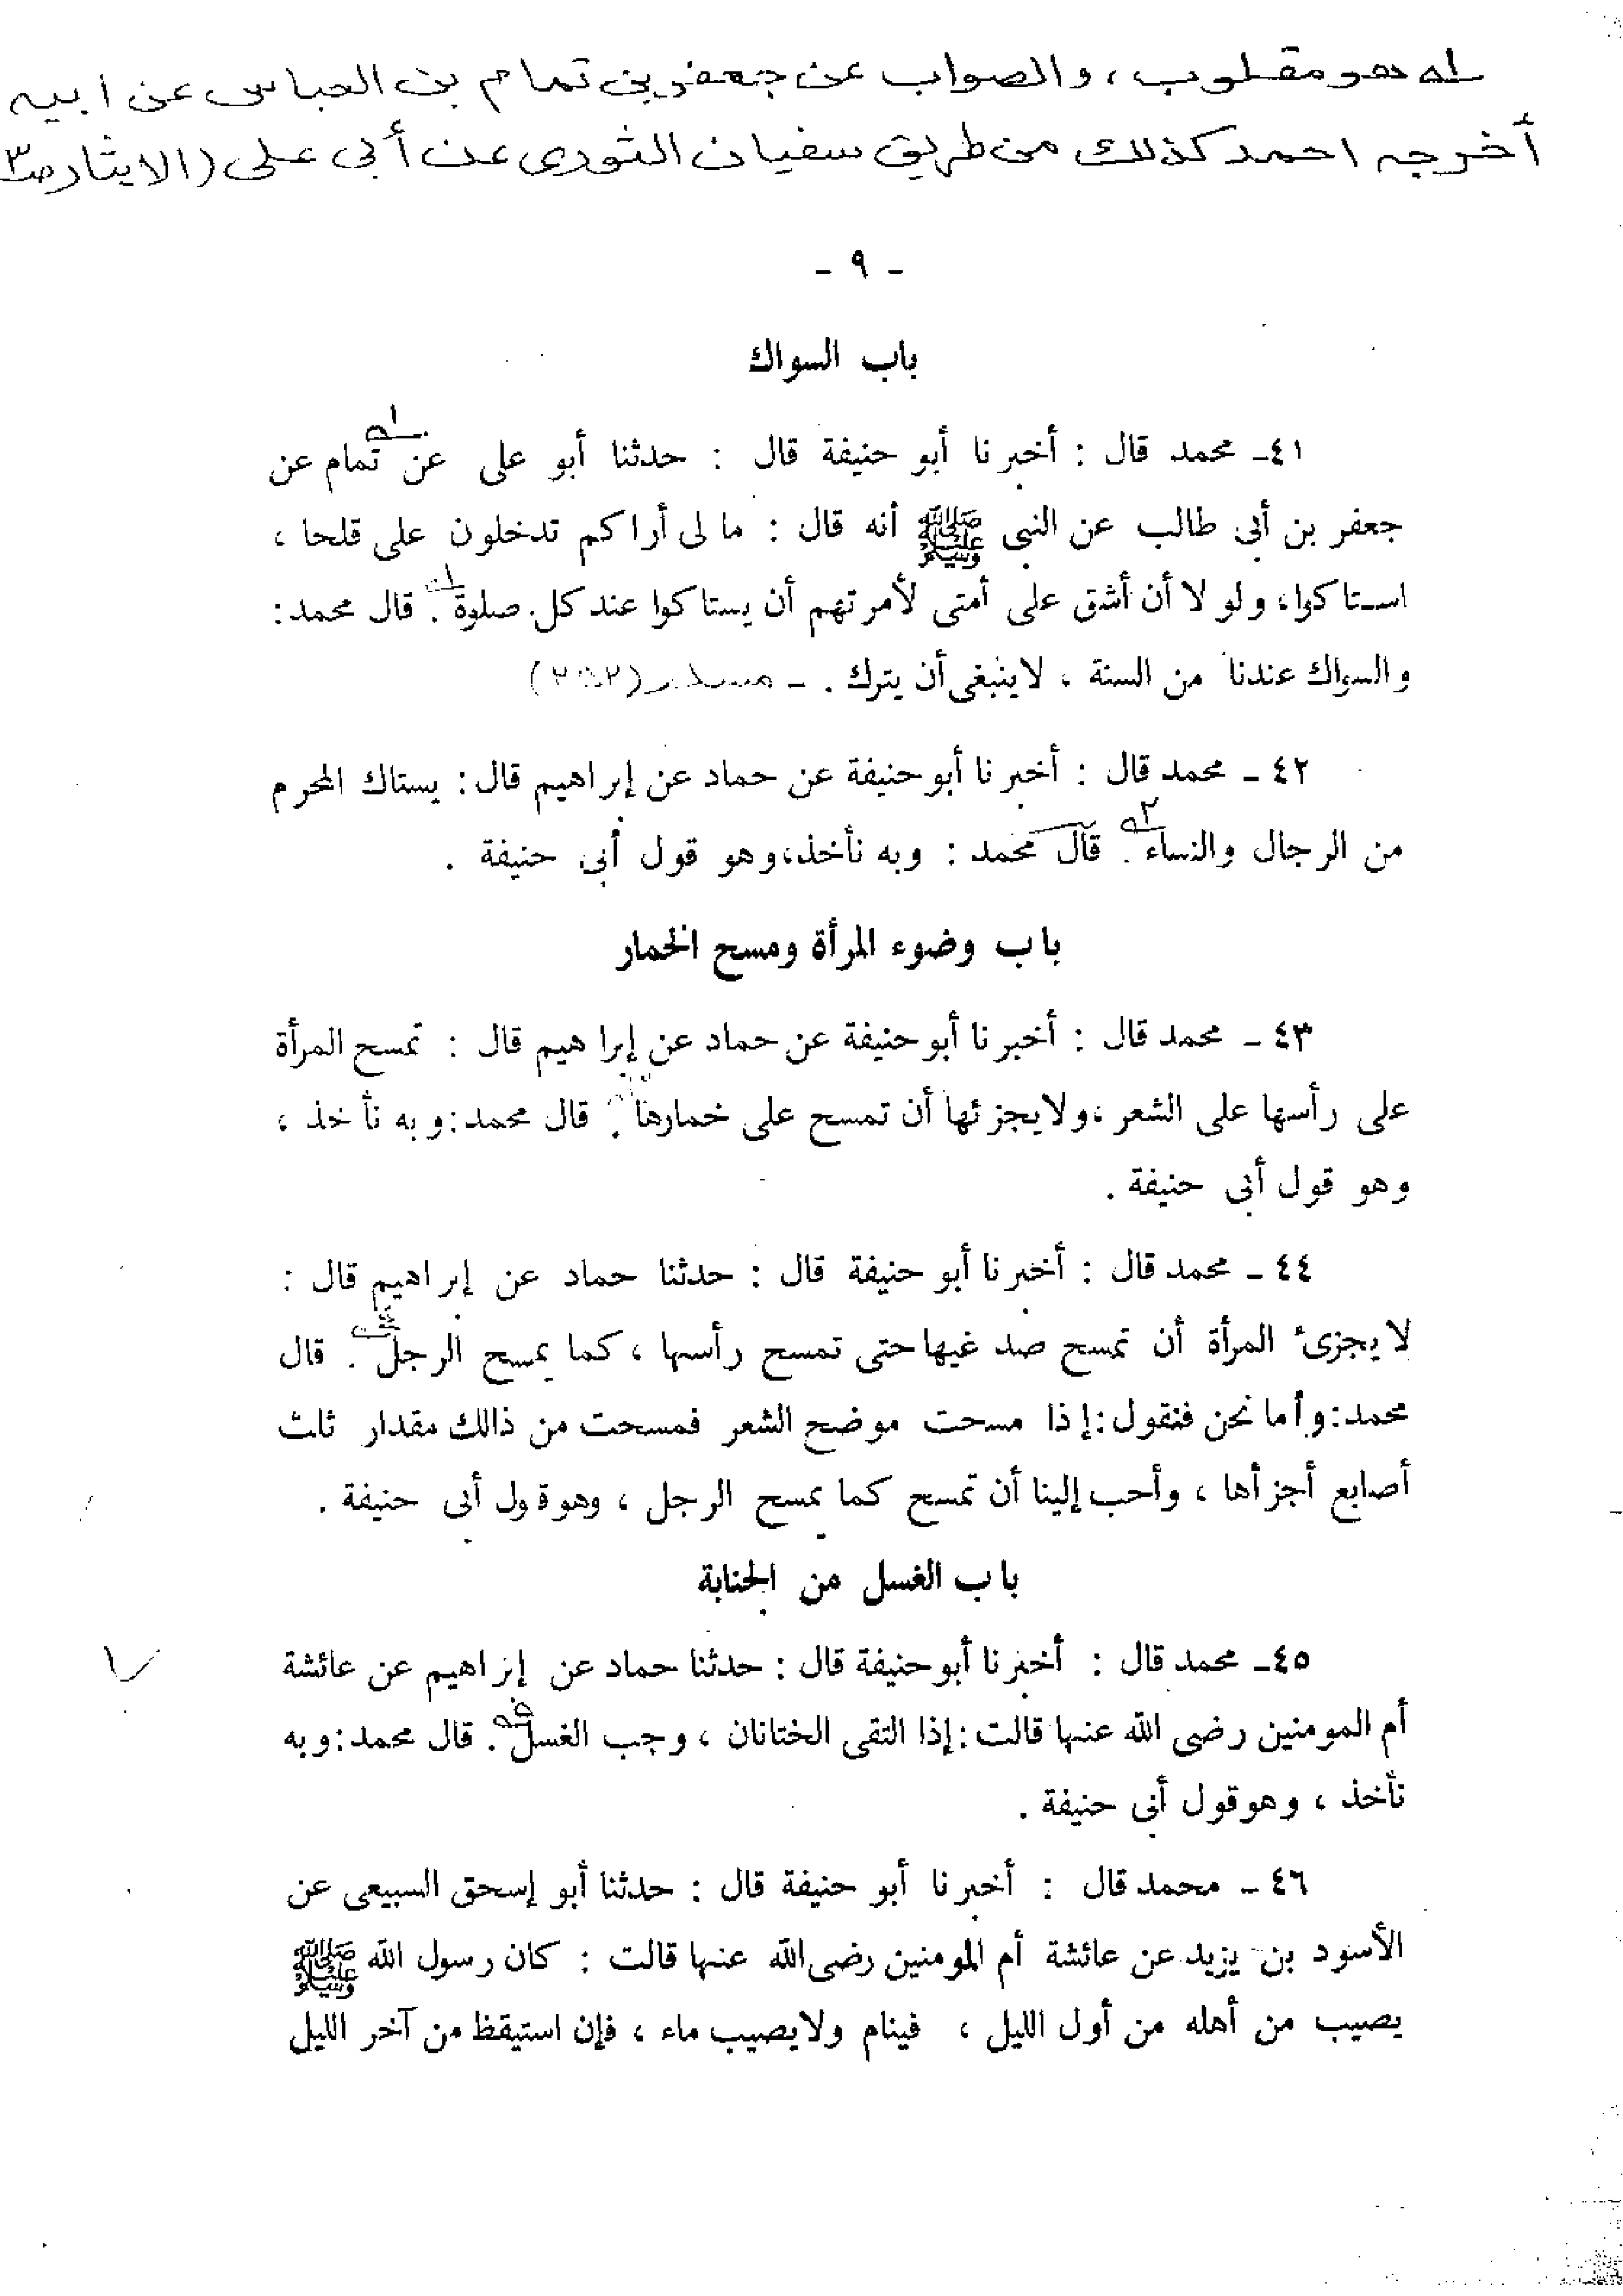 له هو مقلوب ، والصواب عن جعفر بن تمام بن العباس عن ابيه
أخرجه احمد كذلك من طريق سفيان الثورى عن أبى على (الايثار ص٣
- ٩ -
باب السواك
٤١- محمد قال : أخبرنا أبو حنيفة قال : حدثنا أبو على عن تمام عن
جعفر بن أبى طالب عن النبى ﷺ أنه قال : ما لى أراكم تدخلون على قلحا ،
استاكوا، ولو لا أن أشق على أمتى لأمرتهم أن يستاكوا عند كل صلوة . قال محمد:
والسواك عندنا من السنة ، لاينبغى أن يترك . -
٤٢ - محمد قال : أخبرنا أبو حنيفة عن حماد عن إبراهيم قال : يستاك المحرم
من الرجال والنساء . قال محمد : وبه نأخذ، وهو قول أبى حنيفة .
باب وضوء المرأة ومسح الخمار
٤٣ - محمد قال : أخبرنا أبو حنيفة عن حماد عن إبراهيم قال : تمسح المرأة
على رأسها على الشعر ، ولايجزئها أن تمسح على خمارها . قال محمد: وبه نأخذ ،
وهو قول أبى حنيفة .
٤٤ - محمد قال : أخبرنا أبو حنيفة قال : حدثنا حماد عن إبراهيم قال :
لا يجزىء المرأة أن تمسح صدغيها حتى تمسح رأسها ، كما يمسح الرجل . قال
محمد: وأما نحن فنقول: إذا مسحت موضح الشعر فمسحت من ذالك مقدار ثلث
أصابع أجزأها ، وأحب إلينا أن تمسح كما يمسح الرجل ، وهو قول أبى حنيفة .
باب الغسل من الجنابة
٤٥- محمد قال : أخبرنا أبو حنيفة قال : حدثنا حماد عن إبراهيم عن عائشة
أم المومنين رضى الله عنها قالت : إذا التقى الختانان ، وجب الغسل . قال محمد: وبه
نأخذ ، وهو قول أبى حنيفة .
٤٦ - محمد قال : أخبرنا أبو حنيفة قال : حدثنا أبو إسحق السبيعى عن
الأسود بن يزيد عن عائشة أم المومنين رضى الله عنها قالت : كان رسول الله ﷺ
يصيب من أهله من أول الليل ، فينام ولايصيب ماء ، فإن استيقظ من آخر الليل